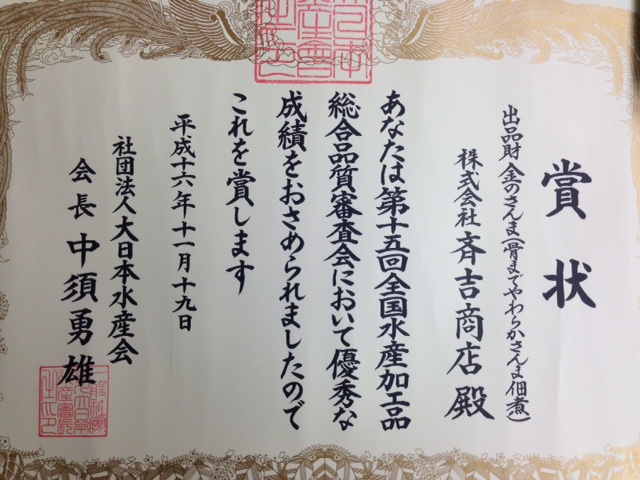 賞状
出品財 金のさんま(骨までやわらかさんま佃煮)
株式会社 斉吉商店 殿
あなたは第十五回全国水産加工品
総合品質審査会において優秀な
成績をおさめられましたので
これを賞します
平成十六年十一月十九日
社団法人大日本水産会
会長 中須勇雄